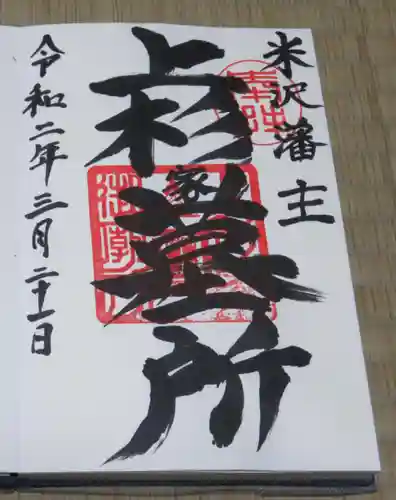 米沢藩主
上杉家墓所
令和二年三月二十一日